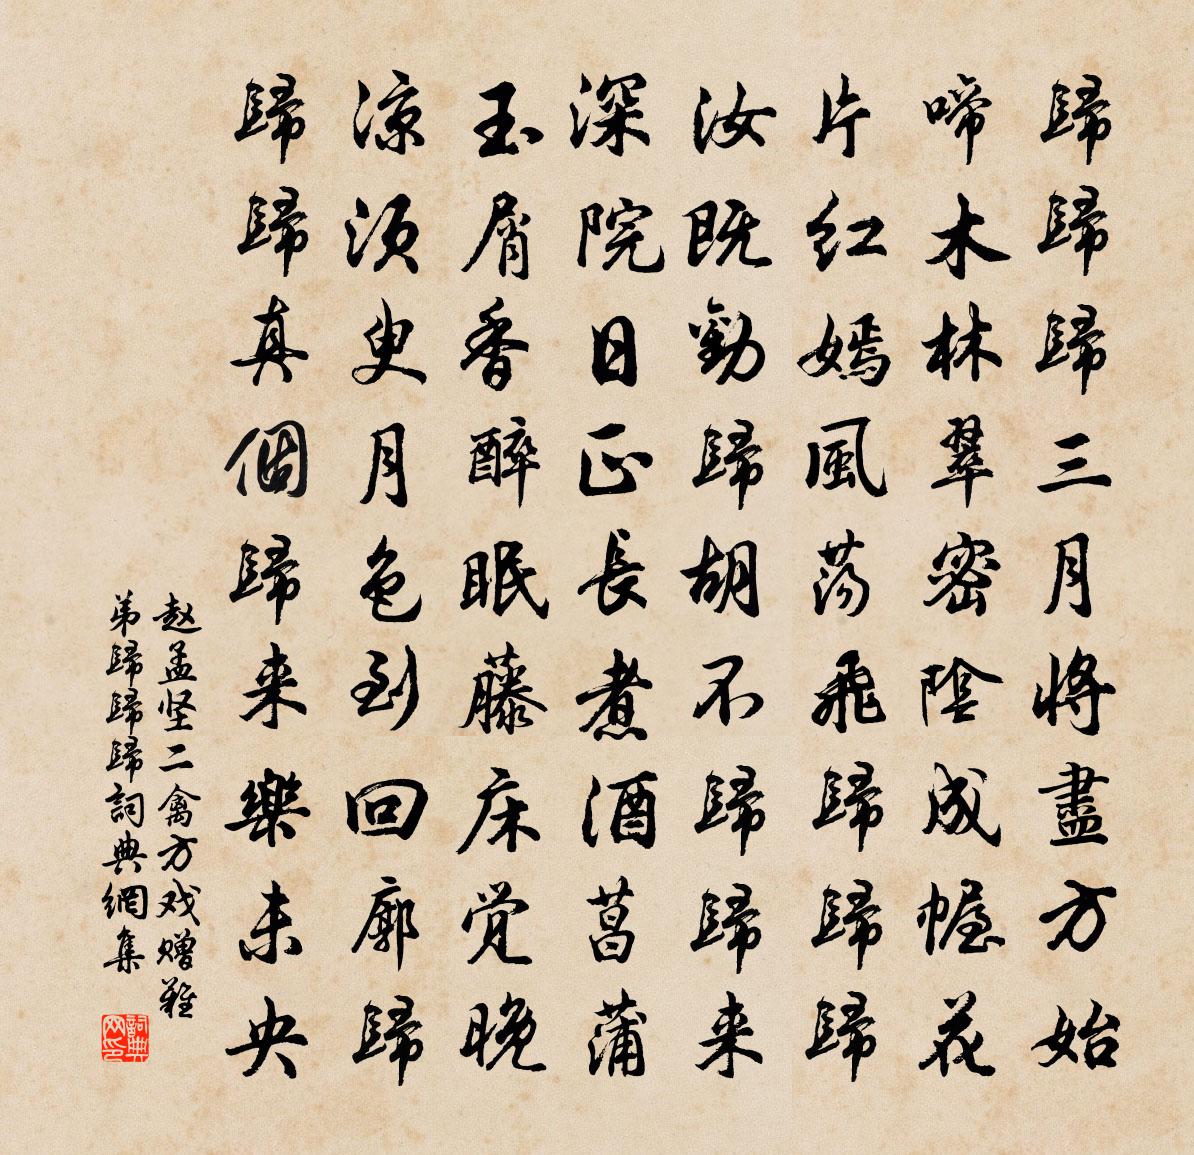 歸歸歸三月將盡方始
啼木林翠密陰成幄花
片红嫣風荡飛歸歸歸
汝既勸歸胡不歸歸来
深院日正長煮酒菖蒲
玉屑香醉眠藤床觉晚
凉须臾月色到回廓歸
歸歸真個歸来樂未央
赵孟坚二禽方戏赠难
弟歸歸歸詞典網集
詞典网印